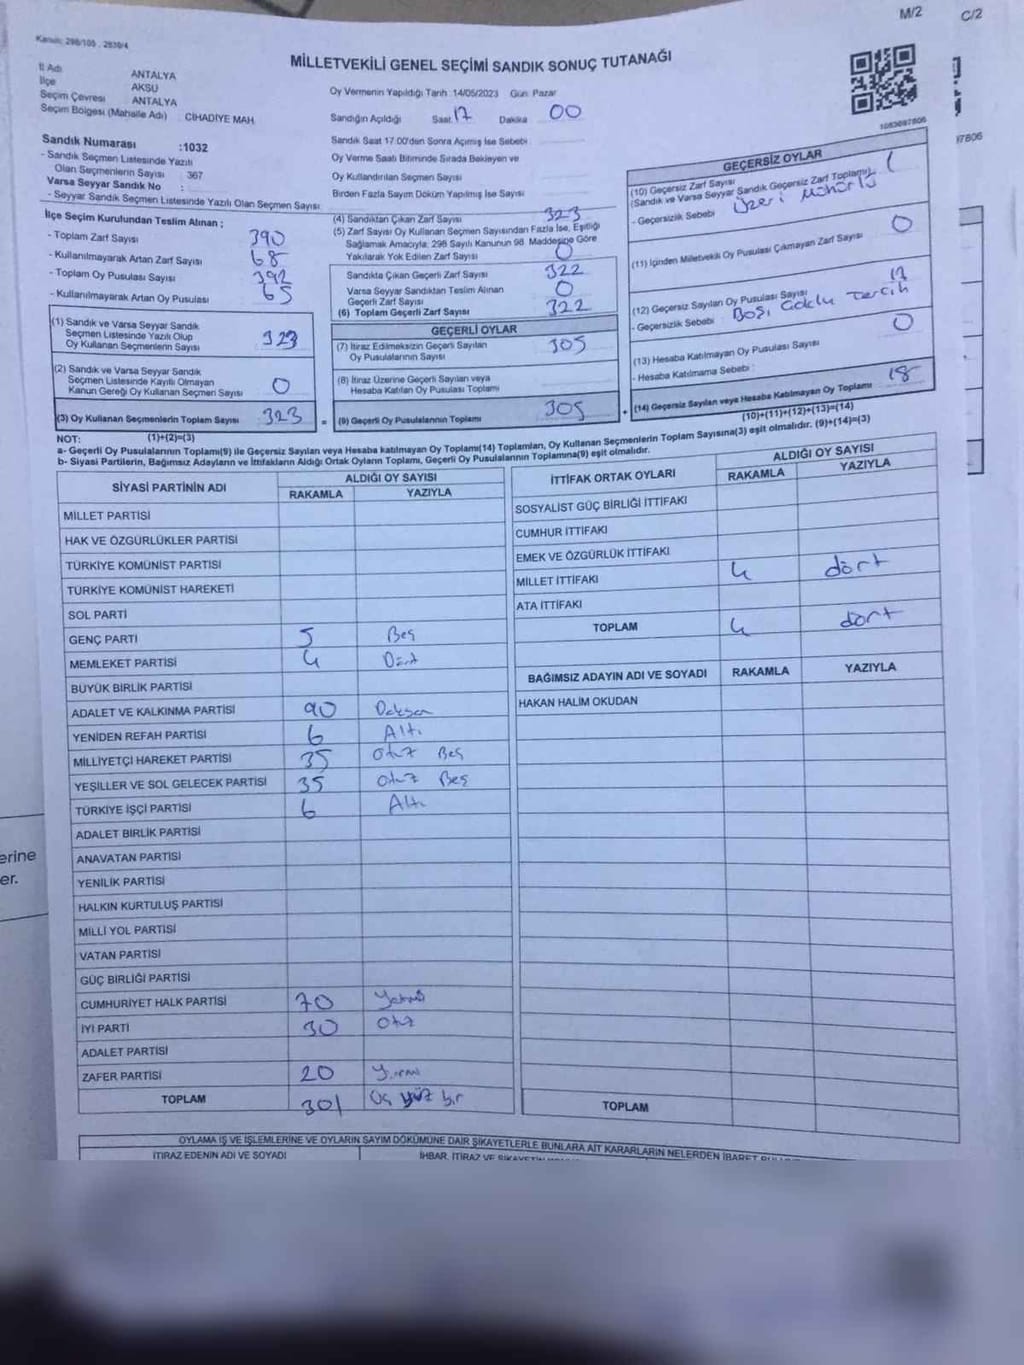 M/2
C/2
Kanun: 298/105 . 2839/4
MİLLETVEKİLİ GENEL SEÇİMİ SANDIK SONUÇ TUTANAĞI
İl Adı ANTALYA
İlçe AKSU
Seçim Çevresi ANTALYA
Seçim Bölgesi (Mahalle Adı) CİHADİYE MAH.
Oy Vermenin Yapıldığı Tarih :14/05/2023 Gün: Pazar
Sandığın Açıldığı Saat 17 Dakika 00
1083697806
97806
Sandık Numarası :1032
- Sandık Seçmen Listesinde Yazılı
Olan Seçmenlerin Sayısı : 367
Varsa Seyyar Sandık No :
- Seyyar Sandık Seçmen Listesinde Yazılı Olan Seçmen Sayısı:
Sandık Saat 17.00'den Sonra Açılmış İse Sebebi
Oy Verme Saati Bitiminde Sırada Bekleyen ve
Oy Kullandırılan Seçmen Sayısı
Birden Fazla Sayım Döküm Yapılmış İse Sayısı
İlçe Seçim Kurulundan Teslim Alınan ;
- Toplam Zarf Sayısı 390
- Kullanılmayarak Artan Zarf Sayısı 68
- Toplam Oy Pusulası Sayısı 392
- Kullanılmayarak Artan Oy Pusulası 65
(1) Sandık ve Varsa Seyyar Sandık
Seçmen Listesinde Yazılı Olup
Oy Kullanan Seçmenlerin Sayısı 323
(2) Sandık ve Varsa Seyyar Sandık
Seçmen Listesinde Kayıtlı Olmayan
Kanun Gereği Oy Kullanan Seçmen Sayısı 0
(3) Oy Kullanan Seçmenlerin Toplam Sayısı 323
(1)+(2)=(3)
(4) Sandıktan Çıkan Zarf Sayısı 323
(5) Zarf Sayısı Oy Kullanan Seçmen Sayısından Fazla İse, Eşitliği
Sağlamak Amacıyla, 298 Sayılı Kanunun 98. Maddesine Göre
Yakılarak Yok Edilen Zarf Sayısı 0
Sandıkta Çıkan Geçerli Zarf Sayısı 322
Varsa Seyyar Sandıktan Teslim Alınan
Geçerli Zarf Sayısı 0
(6) Toplam Geçerli Zarf Sayısı 322
GEÇERLİ OYLAR
(7) İtiraz Edilmeksizin Geçerli Sayılan
Oy Pusulalarının Sayısı 305
(8) İtiraz Üzerine Geçerli Sayılan veya
Hesaba Katılan Oy Pusulası Toplamı
= (9) Geçerli Oy Pusulalarının Toplamı 305 +
GEÇERSİZ OYLAR
(10) Geçersiz Zarf Sayısı 1
(Sandık ve Varsa Seyyar Sandık Geçersiz Zarf Toplamı)
- Geçersizlik Sebebi Üzeri Mühürlü
(11) İçinden Milletvekili Oy Pusulası Çıkmayan Zarf Sayısı 0
(12) Geçersiz Sayılan Oy Pusulası Sayısı 17
- Geçersizlik Sebebi Boş, Çoklu Tercih
(13) Hesaba Katılmayan Oy Pusulası Sayısı 0
- Hesaba Katılmama Sebebi :
(14) Geçersiz Sayılan veya Hesaba Katılmayan Oy Toplamı 18
(10)+(11)+(12)+(13)=(14)
NOT:
a- Geçerli Oy Pusulalarının Toplamı(9) ile Geçersiz Sayılan veya Hesaba katılmayan Oy Toplamı(14) Toplamları, Oy Kullanan Seçmenlerin Toplam Sayısına(3) eşit olmalıdır. (9)+(14)=(3)
b- Siyasi Partilerin, Bağımsız Adayların ve İttifakların Aldığı Ortak Oyların Toplamı, Geçerli Oy Pusulalarının Toplamına(9) eşit olmalıdır.
SİYASİ PARTİNİN ADI ALDIĞI OY SAYISI
RAKAMLA YAZIYLA
MİLLET PARTİSİ
HAK VE ÖZGÜRLÜKLER PARTİSİ
TÜRKİYE KOMÜNİST PARTİSİ
TÜRKİYE KOMÜNİST HAREKETİ
SOL PARTİ
GENÇ PARTİ 5 Beş
MEMLEKET PARTİSİ 4 Dört
BÜYÜK BİRLİK PARTİSİ
ADALET VE KALKINMA PARTİSİ 90 Doksan
YENİDEN REFAH PARTİSİ 6 Altı
MİLLİYETÇİ HAREKET PARTİSİ 35 Otuz Beş
YEŞİLLER VE SOL GELECEK PARTİSİ 35 Otuz Beş
TÜRKİYE İŞÇİ PARTİSİ 6 Altı
ADALET BİRLİK PARTİSİ
ANAVATAN PARTİSİ
YENİLİK PARTİSİ
HALKIN KURTULUŞ PARTİSİ
MİLLİ YOL PARTİSİ
VATAN PARTİSİ
GÜÇ BİRLİĞİ PARTİSİ
CUMHURİYET HALK PARTİSİ 70 Yetmiş
İYİ PARTİ 30 Otuz
ADALET PARTİSİ
ZAFER PARTİSİ 20 Yirmi
TOPLAM 301 Üç yüz bir
İTTİFAK ORTAK OYLARI ALDIĞI OY SAYISI
RAKAMLA YAZIYLA
SOSYALİST GÜÇ BİRLİĞİ İTTİFAKI
CUMHUR İTTİFAKI
EMEK VE ÖZGÜRLÜK İTTİFAKI
MİLLET İTTİFAKI 4 dört
ATA İTTİFAKI
TOPLAM 4 dört
BAĞIMSIZ ADAYIN ADI VE SOYADI RAKAMLA YAZIYLA
HAKAN HALİM OKUDAN
TOPLAM
OYLAMA İŞ VE İŞLEMLERİNE VE OYLARIN SAYIM DÖKÜMÜNE DAİR ŞİKAYETLERLE BUNLARA AİT KARARLARIN NELERDEN İBARET
İTİRAZ EDENİN ADI VE SOYADI
İHBAR, İTİRAZ VE
erine
er.